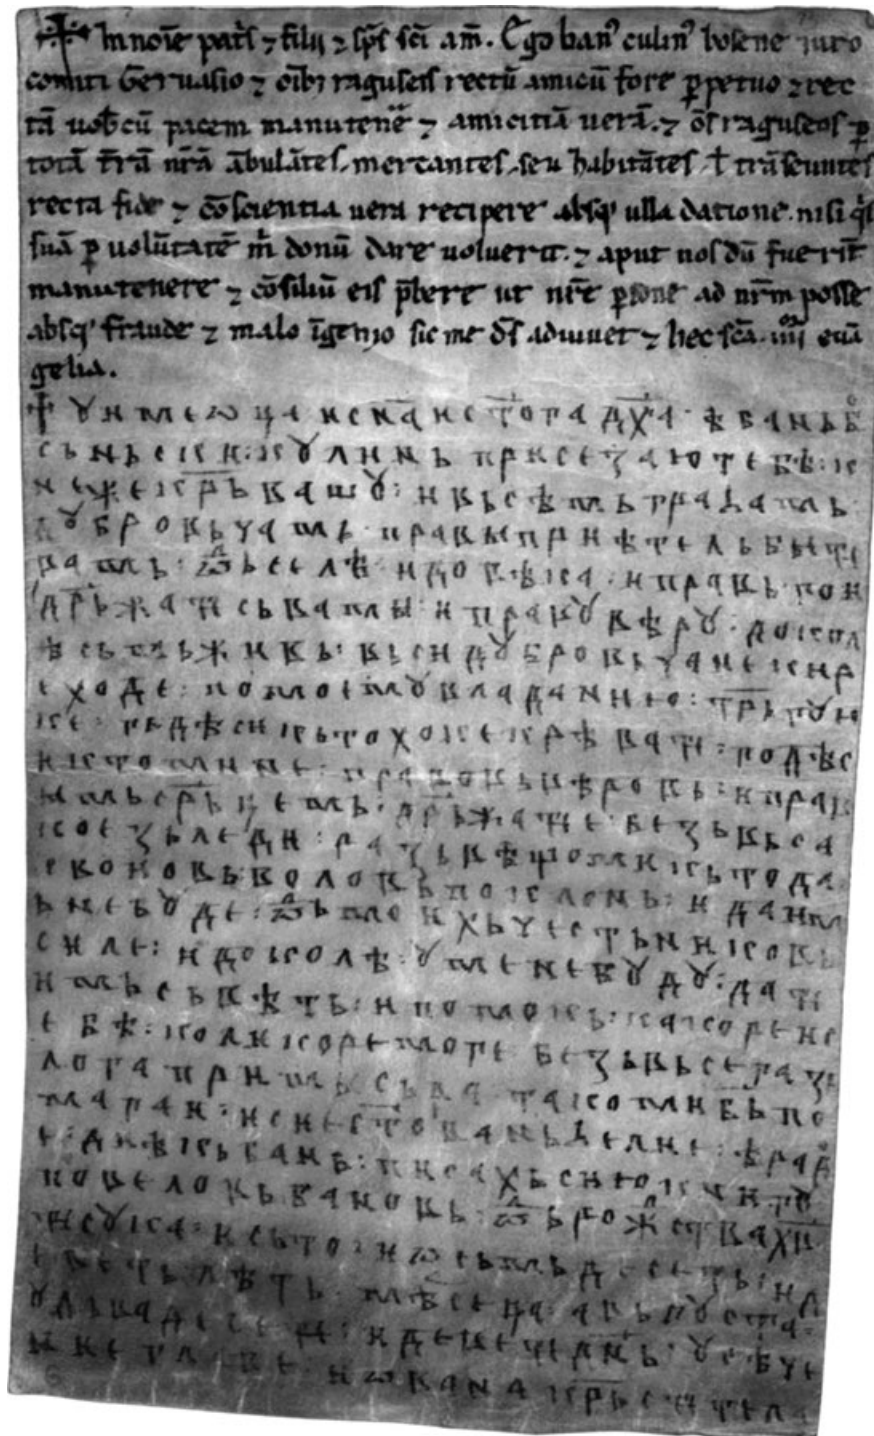 ☩ In noīe pat͛s ⁊ filij ⁊ sp̄s sc̄i am̄. Ego banꝰ culinꝰ bosene iuro
comiti Geruasio ⁊ oīb; raguseis rectū amicū fore ꝑpetuo ⁊ rec
tā uob̄cū pacem manutenē ⁊ amicitiā uerā. ⁊ oēs raguseos ꝑ
totā tr̄ā nr̄ā ābulātes, mercantes, seu habitātes, ł trāseuntes
recta fide ⁊ cōscientia uera recipere absq; ulla datione. nisi q͛s
suā ꝑ uolūtatē m͛ donū dare uoluerit. ⁊ aput nos dū fuerīt
manutenere ⁊ cōsiliū eis p̄bere ut nr̄e ꝑsone ad nr̄m posse
absq; fraude ⁊ malo īgenio sic me ds̄ adiuuet ⁊ hec sc̄a. iiii euā
gelia.
☩ ꙋ име ѡца и сн҃а и ст҃ога дх҃а · ѣ бань б
сьньски : кꙋлинь присезаю тебѣ : к
неже кр҃ьвашꙋ : и вьсѣмь грађамь ·
дꙋбровьчамь · правы приѣтель быти
вамь : ѿ селѣ · и довѣка : и правь гои
др҃ьжати сь вами : и правꙋ вѣрꙋ : докол
ѣ сьмь живь : вьси дꙋбровьчане кир
е ходе : по моемꙋ владанию : тр҃ьгꙋю
ке : гьдѣ си кьто хоке крѣвати : годѣ с
и кто мине : правовь вѣровь : и прав
ымь ср҃ьцемь : др҃ьжати е : безь вьса
коѥ зьледи : развѣ що ми кьто да
 своиовь воловь поклонь : и да им
ь не бꙋде : ѿь моихь честьниковь
силе : и доколѣ : ꙋ мене бꙋдꙋ : дати
имь сьвѣть : и помокь : како ре и с
ебѣ : коликоре море безь вьсега зь
лога примысьла · тако ми б҃ь по
магаи : и сие ст҃о еваньђелие : ѣ рад
е : диѣкь бань : писахь сию книгꙋ
повеловь бановь : ѿ рожства хв
 исꙋка : и сьто : и ѡсьмьдесеть : и д
еветь лѣть : мѣсеца : авьгꙋста :
ꙋ двадесети : и девети дн҃ь : ꙋсѣче
ние главе : иѡвана кр҃ьститела